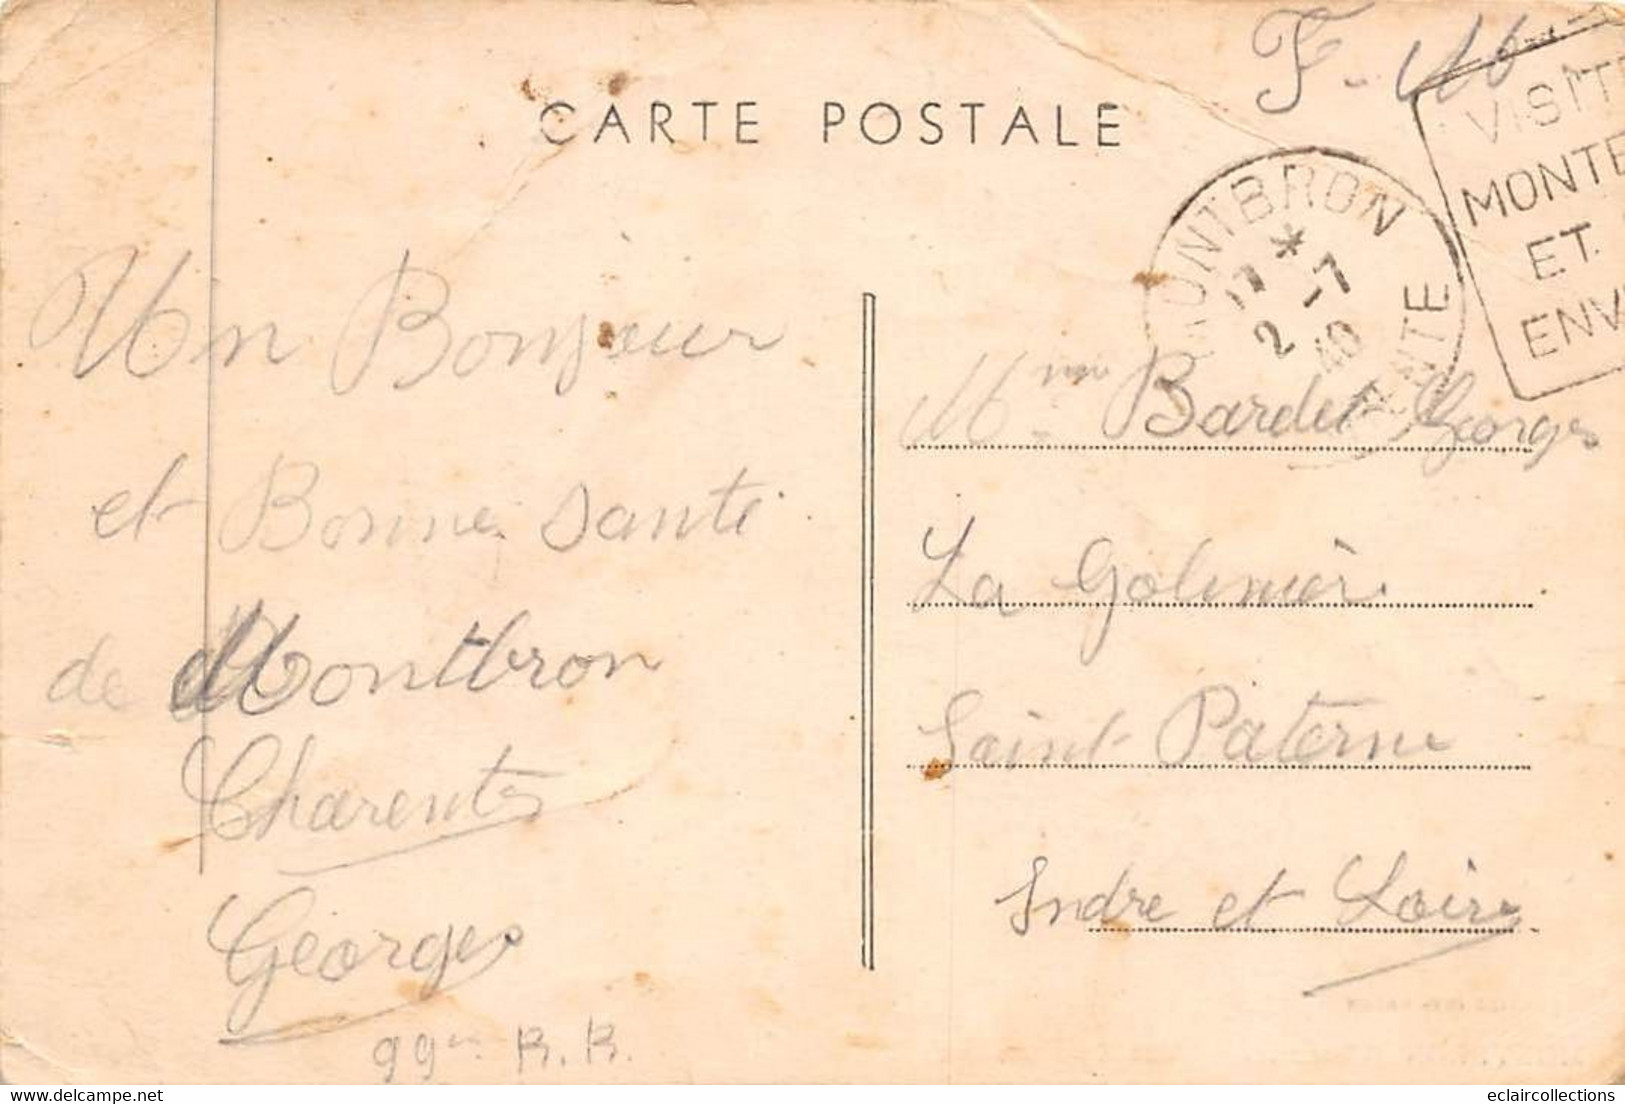 F. M
CARTE POSTALE
VISITE
MONTB
ET
ENV
MONTBRON
17 *
2 -7
40
Un Bonjour
et Bonne santé
de Montbron
Charente
Georges
99em R.R.
Mme Bardet Georges
La Golinière
Saint Paterne
Indre et Loire
eclaircollections